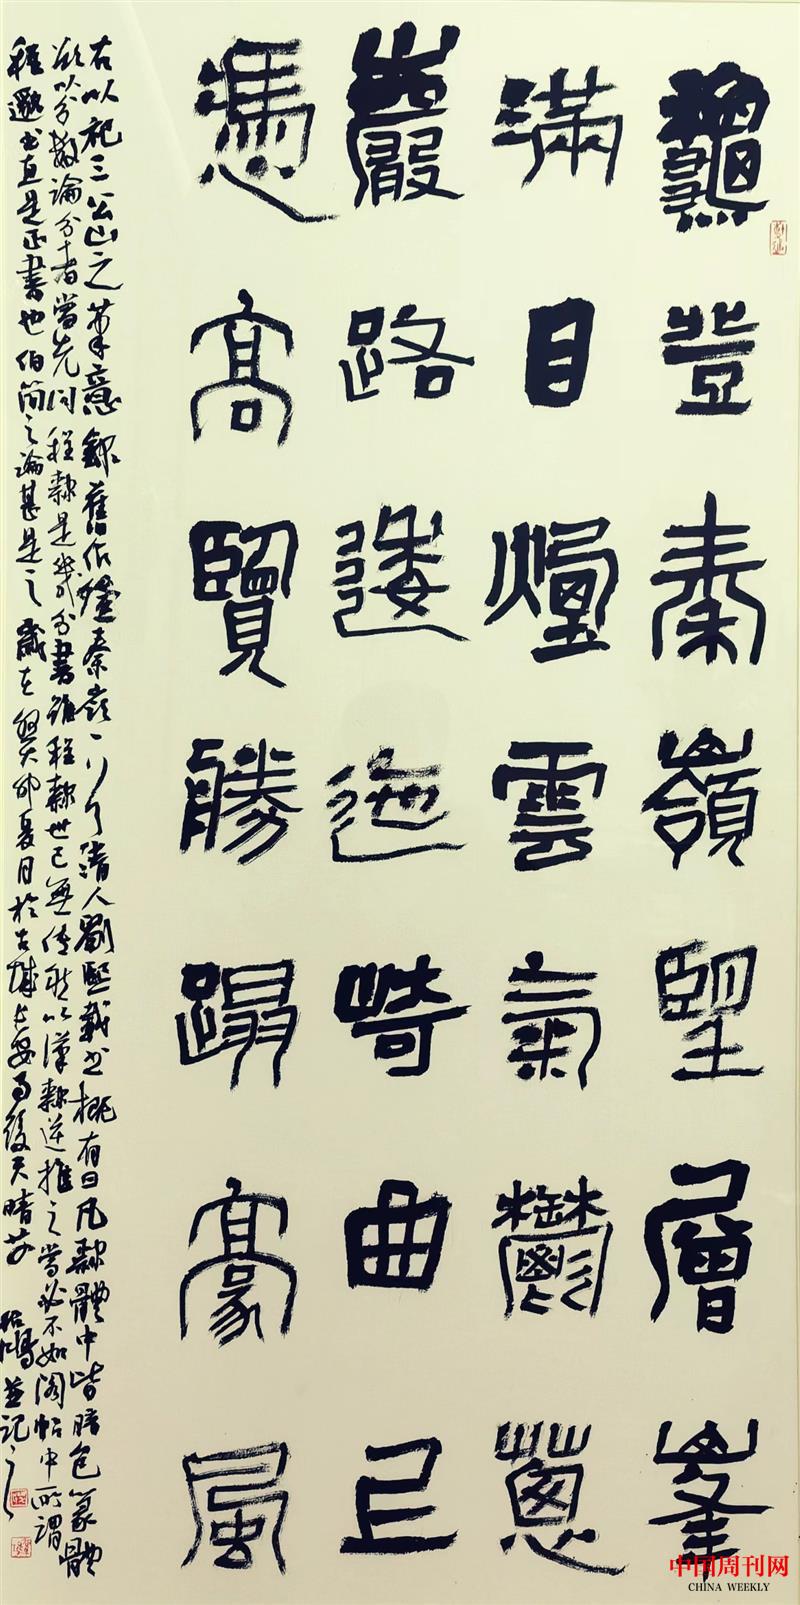 龝登秦嶺望層峯
滿目煙雲氣鬱蔥
巖路逶迤崎曲上
憑高覽勝蹋豪風
右以祀三公山之筆意錄舊作登秦嶺一清人劉熙載書概有曰凡隸體中皆暗包篆體
欲以分數論分者當先問程隸是幾分書雖程隸世已無傳然以漢隸逆推之當必不如閣帖中所謂
程邈書直是正書也伯簡之論甚是之歲在癸卯夏月於古城長安雨後天晴鴻並記之
中国周刊网
CHINA WEEKLY